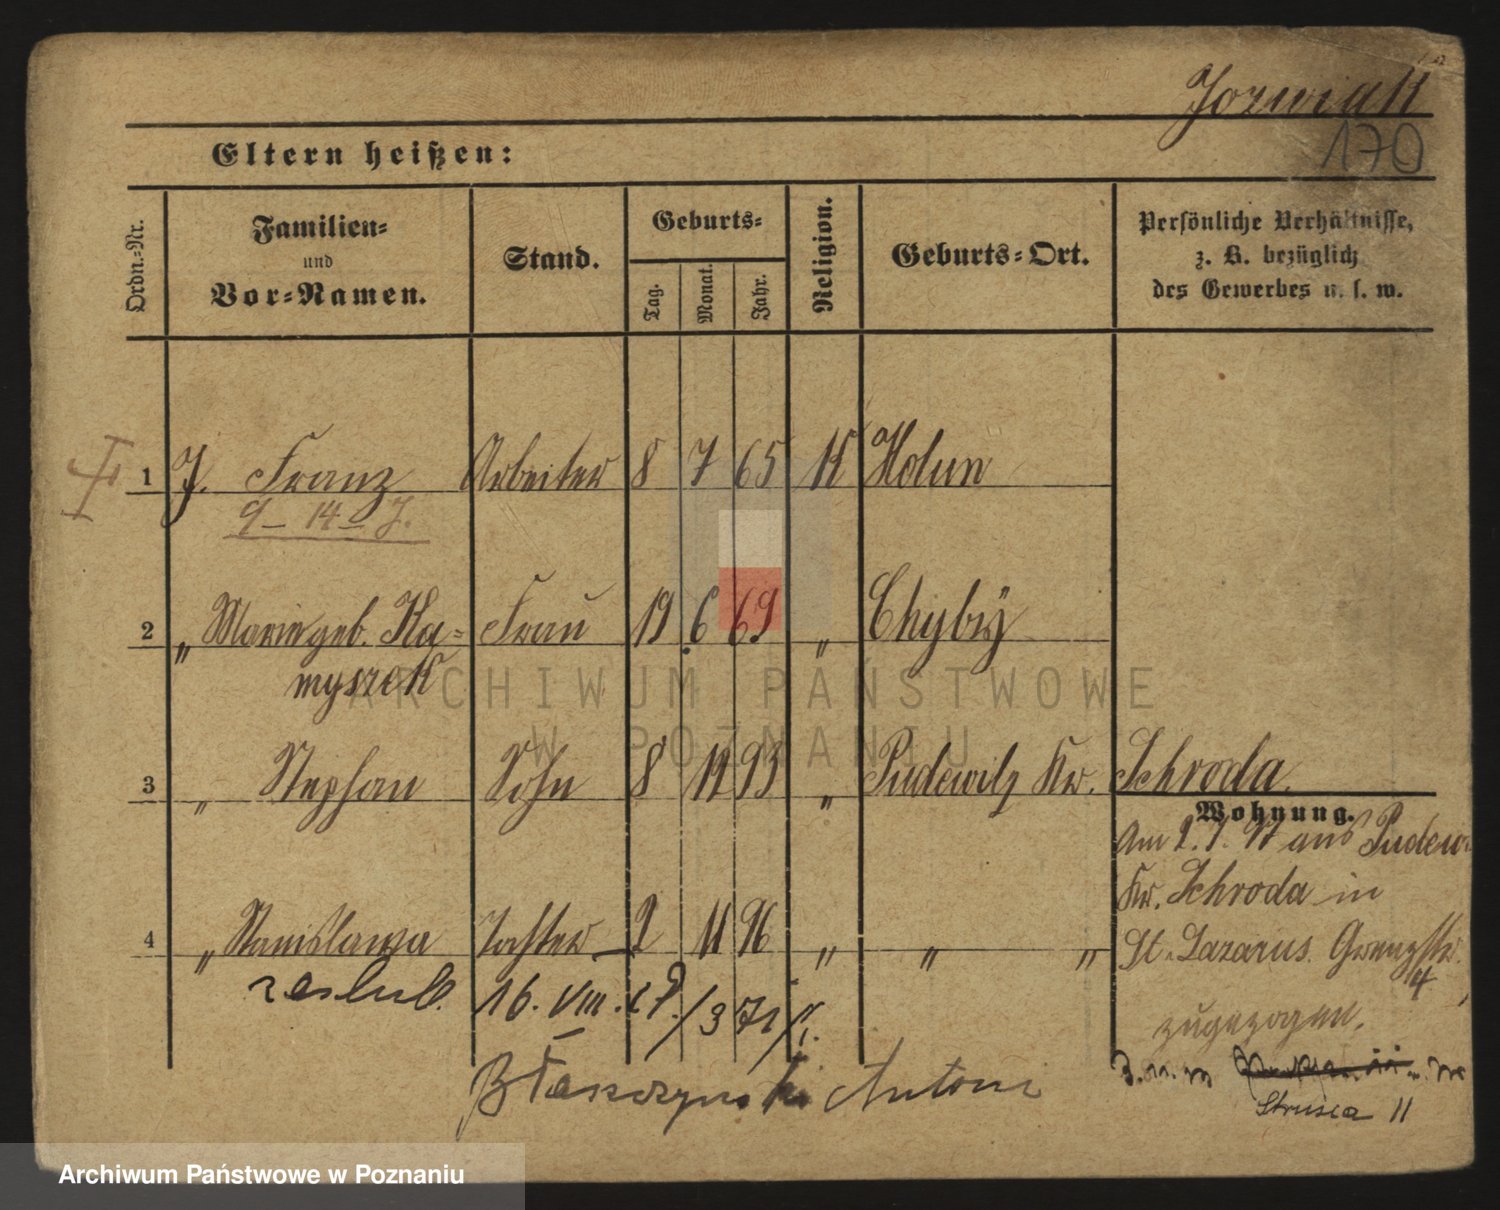 Jozwiak
170
Eltern heißen:
Ordn.-Nr.
Familien- und Vor-Namen.
Stand.
Geburts-
Tag.
Monat.
Jahr.
Religion.
Geburts-Ort.
Persönliche Verhältnisse, z. B. bezüglich des Gewerbes u. s. w.
1 J. Franz Arbeiter 8 7 65 K Kolun
9 – 14 – J.
2 „ Marie geb. Ka- Frau 19 6 69 „ Chyby
myszek
3 „ Stephan Sohn 8 12 93 „ Pudewitz Kr. Schroda.
Wohnung.
Am 2.1.97 aus Pudew.
Kr. Schroda in
4 „ Stanislawa Tochter 2 11 96 „ „ „ St. Lazarus. Grenzstr.
4
zugezogen.
zaślub. 16. VIII. 19. / 371 /
Błaszczyński Antoni
Strusia 11
ARCHIWUM PAŃSTWOWE
W POZNANIU
Archiwum Państwowe w Poznaniu